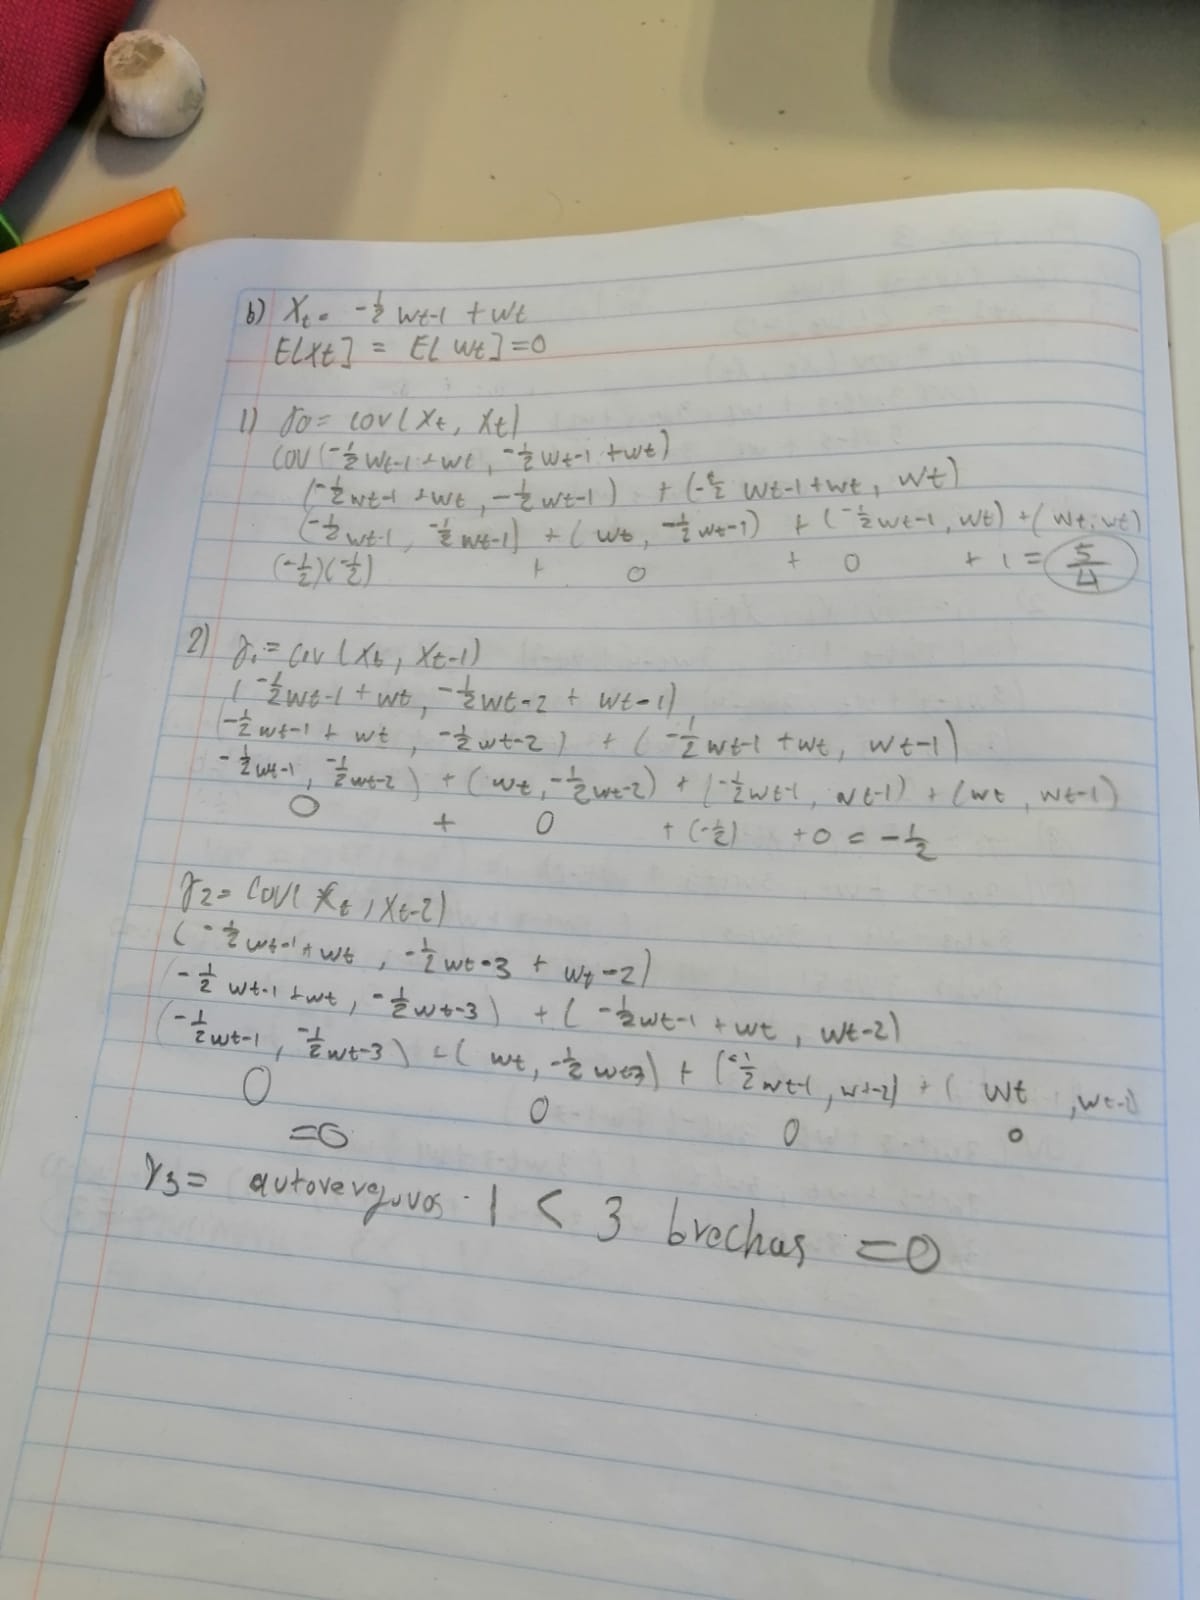 b) Xt = -½ wt-1 + wt
E[Xt] = E[wt] = 0
1) γ0 = cov(Xt, Xt)
Cov(-½wt-1 + wt, -½wt-1 + wt)
(-½wt-1 + wt, -½wt-1) + (-½ wt-1 + wt, wt)
(-½wt-1, -½wt-1) + (wt, -½wt-1) + (-½wt-1, wt) + (wt, wt)
(-½)(-½) + 0 + 0 + 1 = 5/4
2) γ1 = cov(Xt, Xt-1)
(-½wt-1 + wt, -½wt-2 + wt-1)
(-½wt-1 + wt, -½wt-2) + (-½wt-1 + wt, wt-1)
-½wt-1, -½wt-2) + (wt, -½wt-2) + (-½wt-1, wt-1) + (wt, wt-1)
0 + 0 + (-½) + 0 = -½
γ2 = Cov(Xt, Xt-2)
(-½wt-1 + wt, -½wt-3 + wt-2)
-½ wt-1 + wt, -½wt-3) + (-½wt-1 + wt, wt-2)
(-½wt-1, -½wt-3) + (wt, -½wt3) + (-½wt-1, wt-2) + (wt, wt-2)
0 0 0 0
=0
γ3 = 1 < 3 brechas = 0